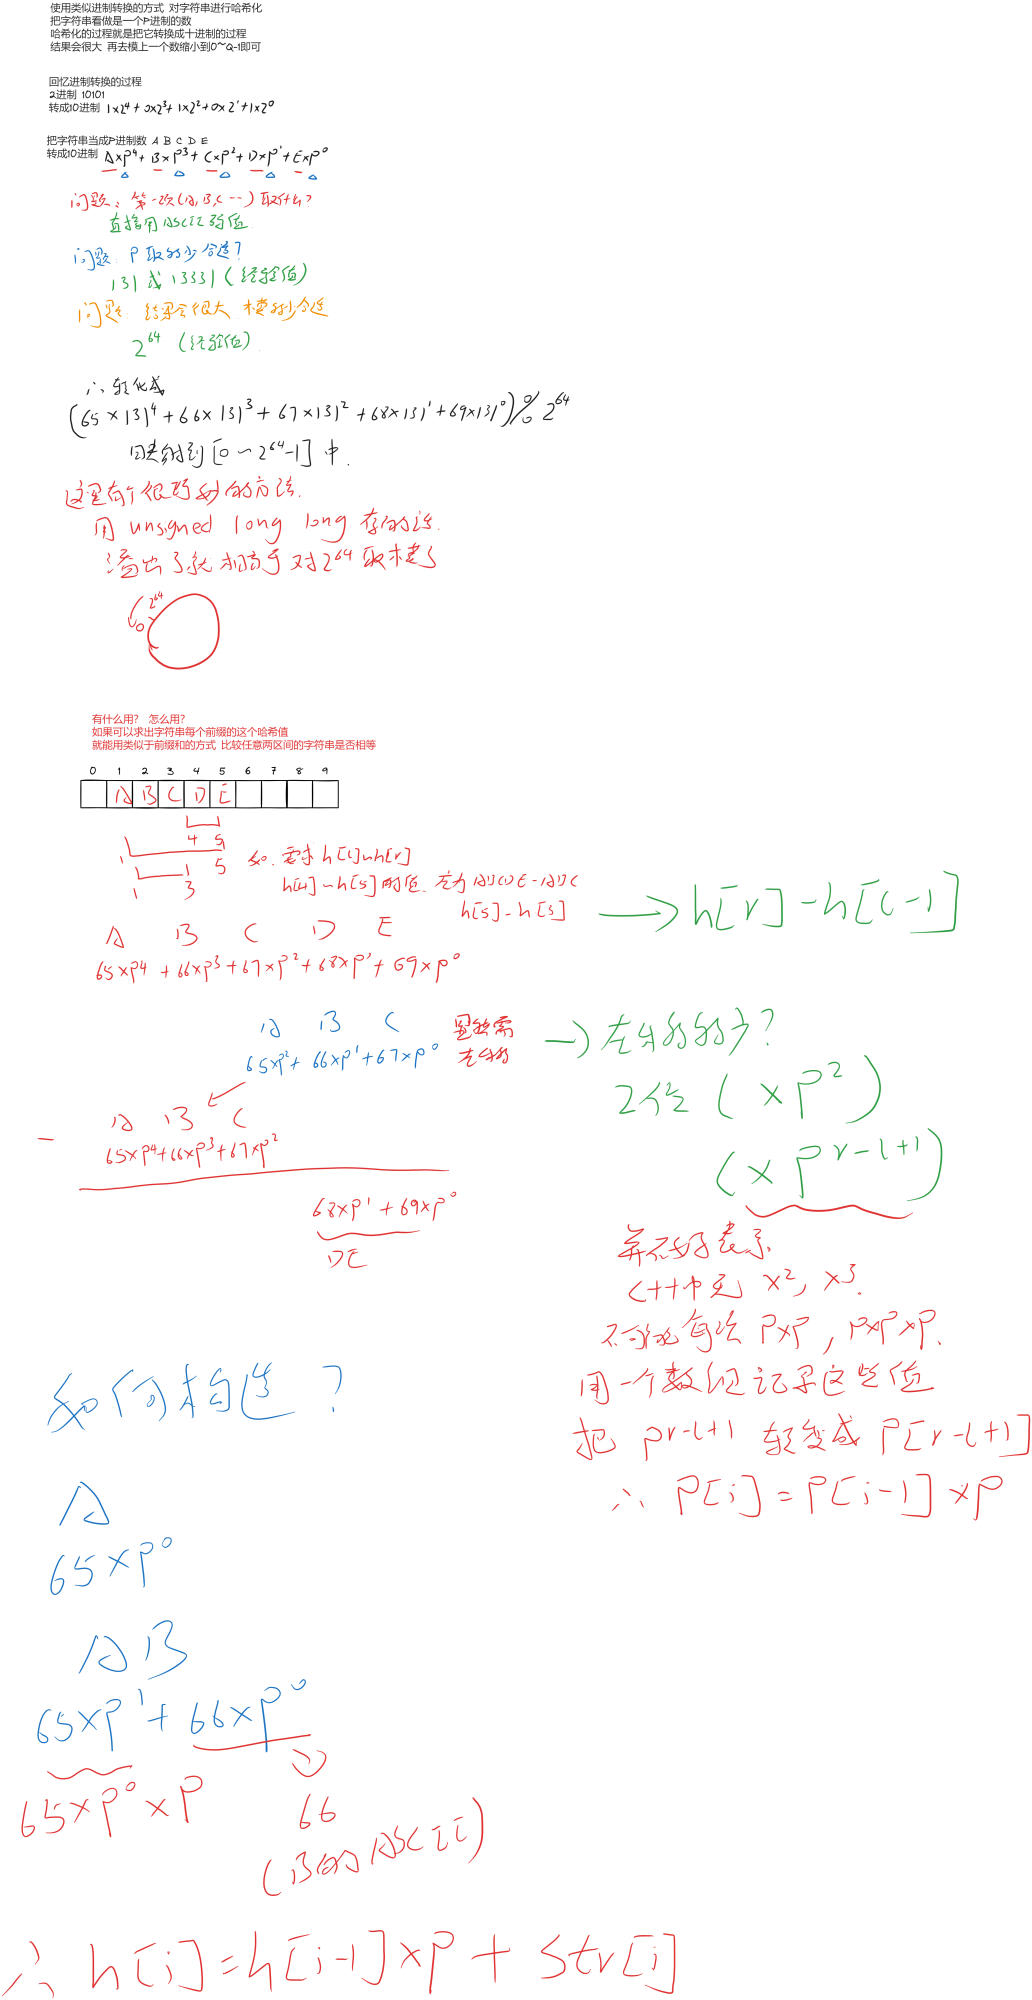 使用类似进制转换的方式 对字符串进行哈希化
把字符串看做是一个P进制的数
哈希化的过程就是把它转换成十进制的过程
结果会很大 再去模上一个数缩小到0~Q-1即可
回忆进制转换的过程
2进制 10101
转成10进制 1×2⁴+0×2³+1×2²+0×2¹+1×2⁰
把字符串当成P进制数 A B C D E
转成10进制 A×P⁴+B×P³+C×P²+D×P¹+E×P⁰
问题: 第一项(A,B,C--)取什么?
直接用ASCII码值
问题: P取多少合适?
131或13331(经验值)
问题: 结果会很大 模多少合适
2⁶⁴ (经验值)
∴ 转化成
(65×131⁴+66×131³+67×131²+68×131¹+69×131⁰)%2⁶⁴
映射到[0~2⁶⁴-1]中.
这里有个很巧妙的方法.
用 unsigned long long 存的话.
溢出了就相当于对2⁶⁴取模了
2⁶⁴
0
有什么用? 怎么用?
如果可以求出字符串每个前缀的这个哈希值
就能用类似于前缀和的方式 比较任意两区间的字符串是否相等
0 1 2 3 4 5 6 7 8 9
A B C D E
4 5
1 5
1 3
如. 需求h[l]~h[r]
h[4]~h[5]的值. 应为ABCDE-ABC
h[5]-h[3]
→ h[r]-h[l-1]
A B C D E
65×P⁴+66×P³+67×P²+68×P¹+69×P⁰
A B C
65×P²+66×P¹+67×P⁰
显然需
左移
→ 左移多少?
2位 (×P²)
(×P^r-l+1)
A B C
- 65×P⁴+66×P³+67×P²
68×P¹+69×P⁰
DE
并不好表示
C++中无 x², x³.
不可能每次 P×P, P×P×P.
用一个数组记录这些值
把 P^r-l+1 转变成 P[r-l+1]
∴ P[i]=P[i-1]×P
如何构造?
A
65×P⁰
A B
65×P¹+66×P⁰
65×P⁰×P
66
(B的ASCII)
∴ h[i]=h[i-1]×P+str[i]